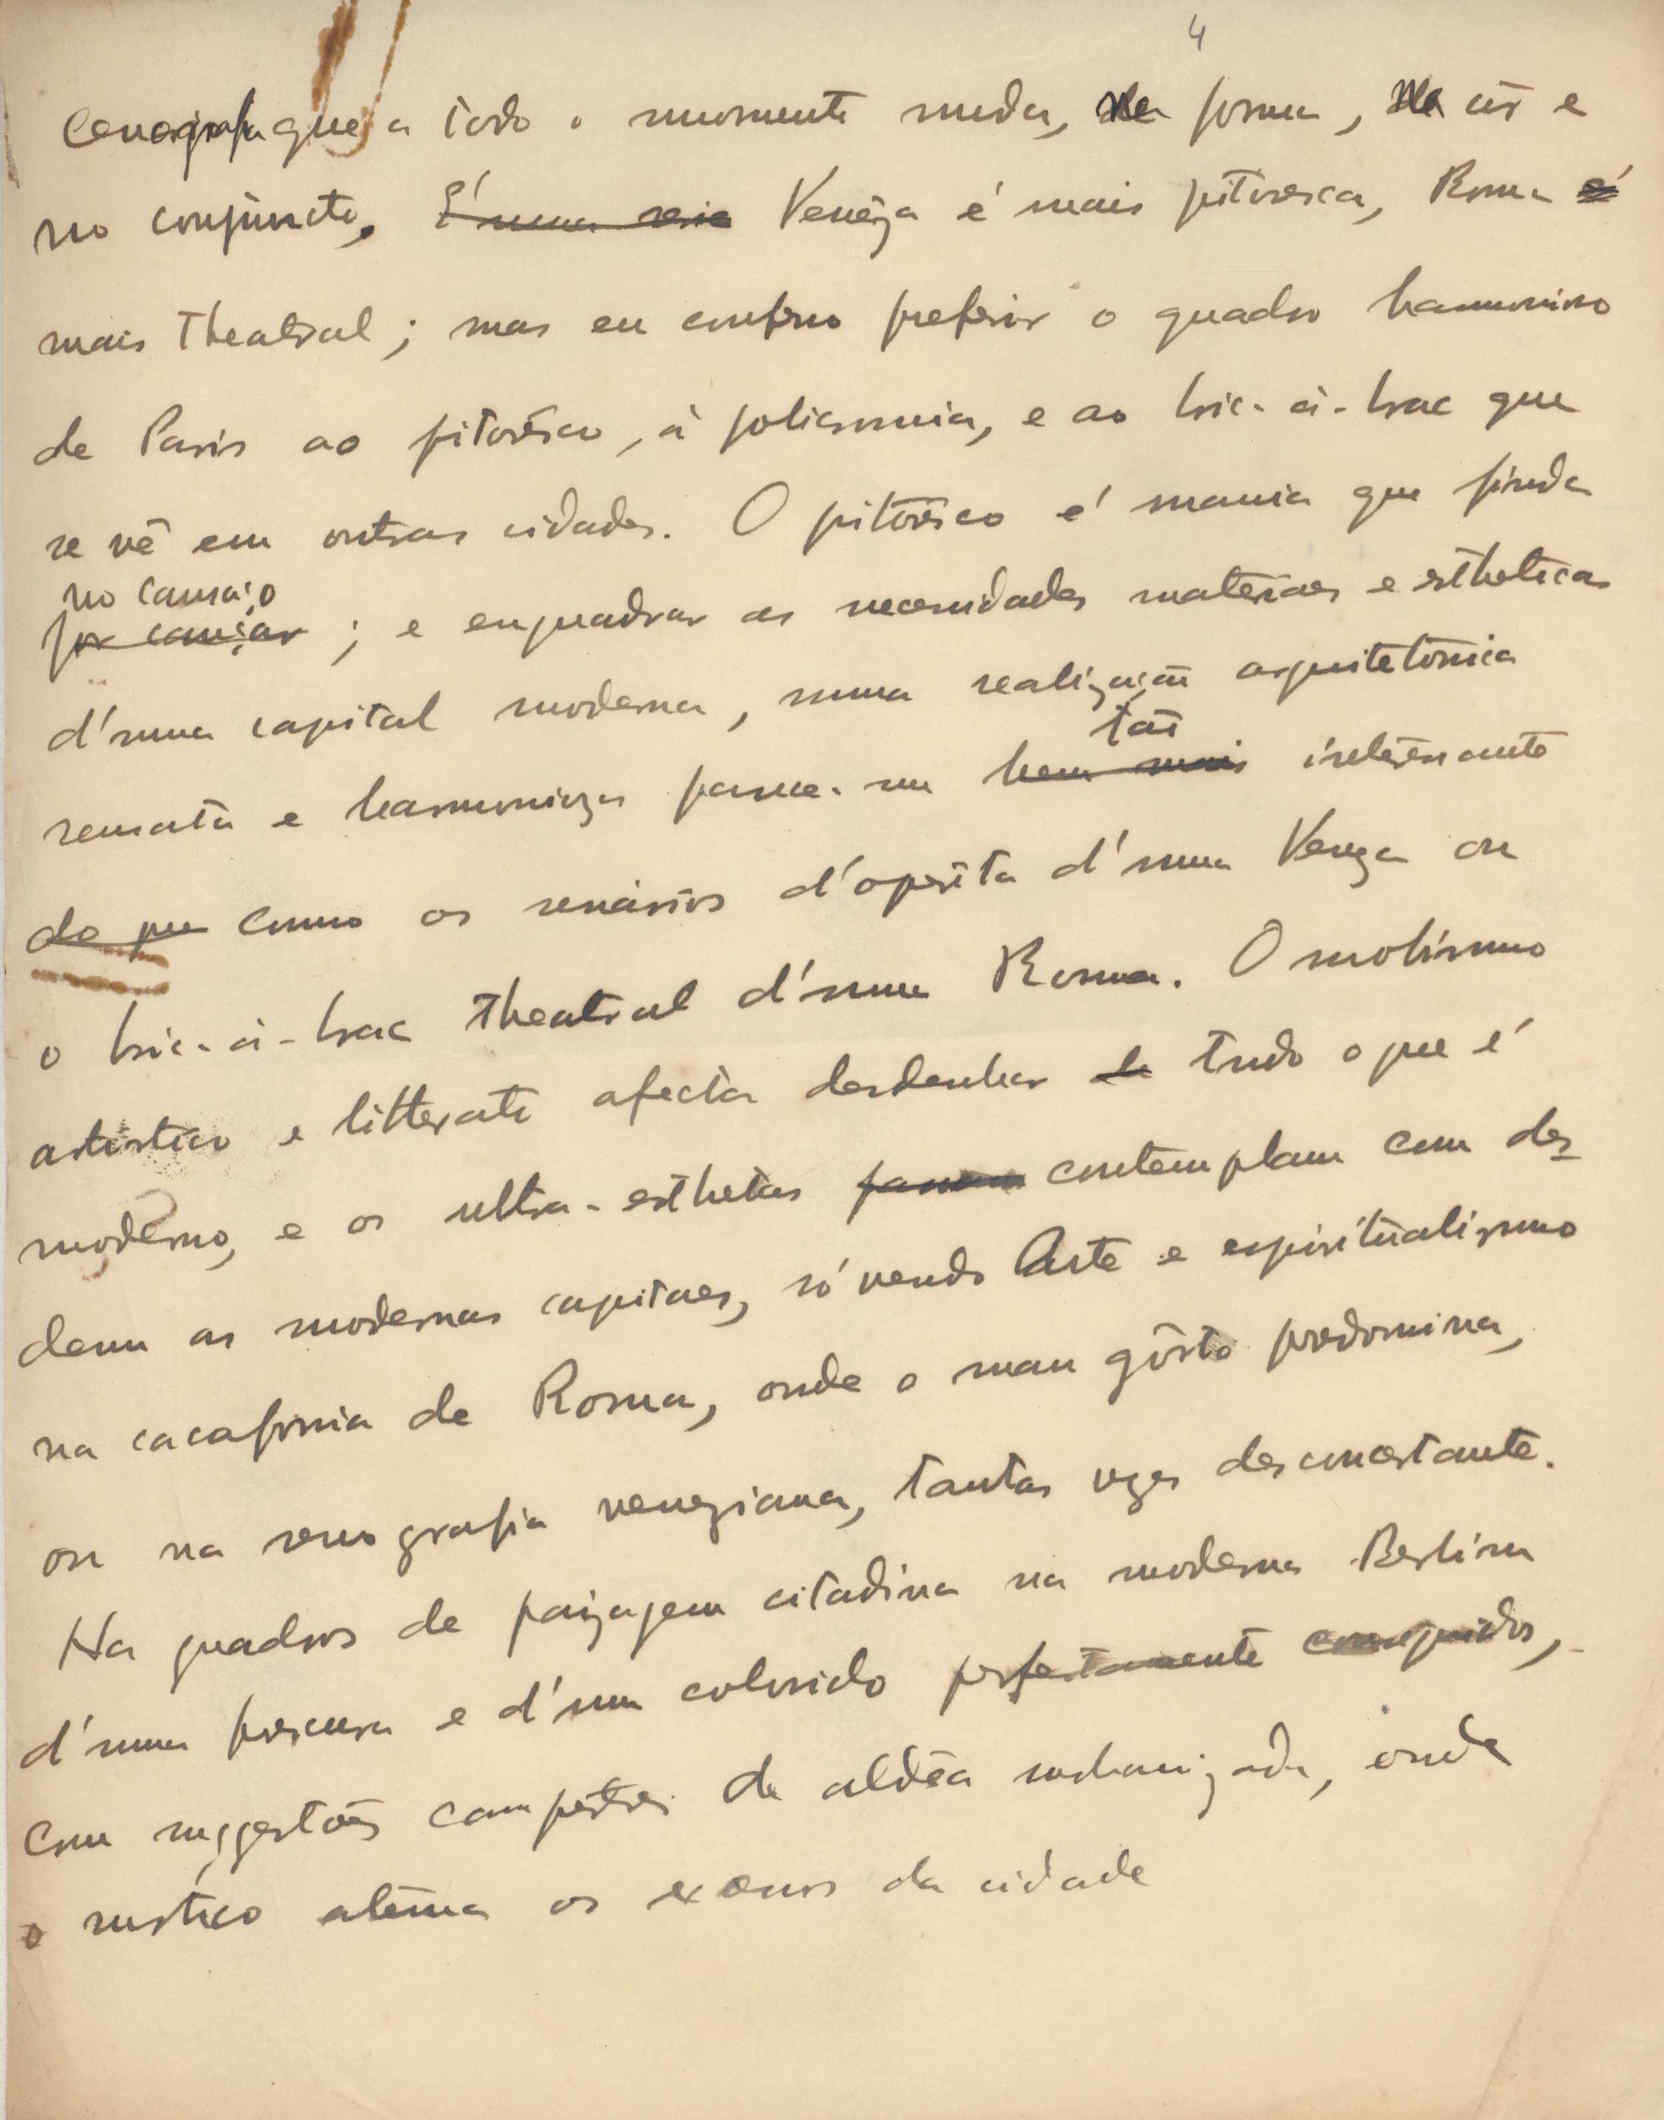 4
Cenografia que a todo o momento muda, na forma, na côr e
no conjuncto. É numa Veneza é mais pitoresca, Roma é
mais theatral; mas eu confesso preferir o quadro harmonioso
de Paris ao pitoresco, à policromia, e ao bric-à-brac que
se vê em outras cidades. O pitoresco é mania que finda
no cansaço
por cançar ; e enquadrar as necessidades materiaes e estheticas
d'uma capital moderna, numa realização arquitetónica
tão
sensata e harmonioza parece-me bem mais interessante
do que como os scenários d'opereta d'uma Veneza ou
o bric-à-brac theatral d'uma Roma. O snobismo
artistico e litterato afecta desdenhar de tudo o que é
moderno, e os ultra-esthetas contemplam com des-
dem as modernas capitaes, só vendo Arte e espiritualismo
na cacafonia de Roma, onde o mau gôsto predomina,
ou na scenografia veneziana, tantas vezes desconcertante.
Ha quadros de paizagem citadina na moderna Berlim
d'uma frescura e d'um colorido perfeitamente conseguidos,
com suggestões campestres de aldêa urbanizada, onde
o rustico atenua os excessos da cidade